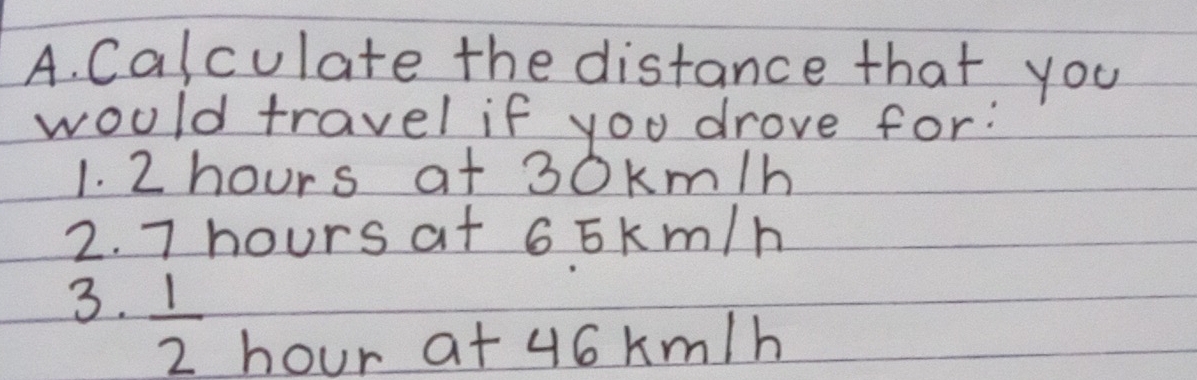 A. Calculate the distance that you
would travel if you drove for:
1. 2 hours at 30km/h
2. 7 hours at 65km/h
3. 1
2 hour at 46 km/h